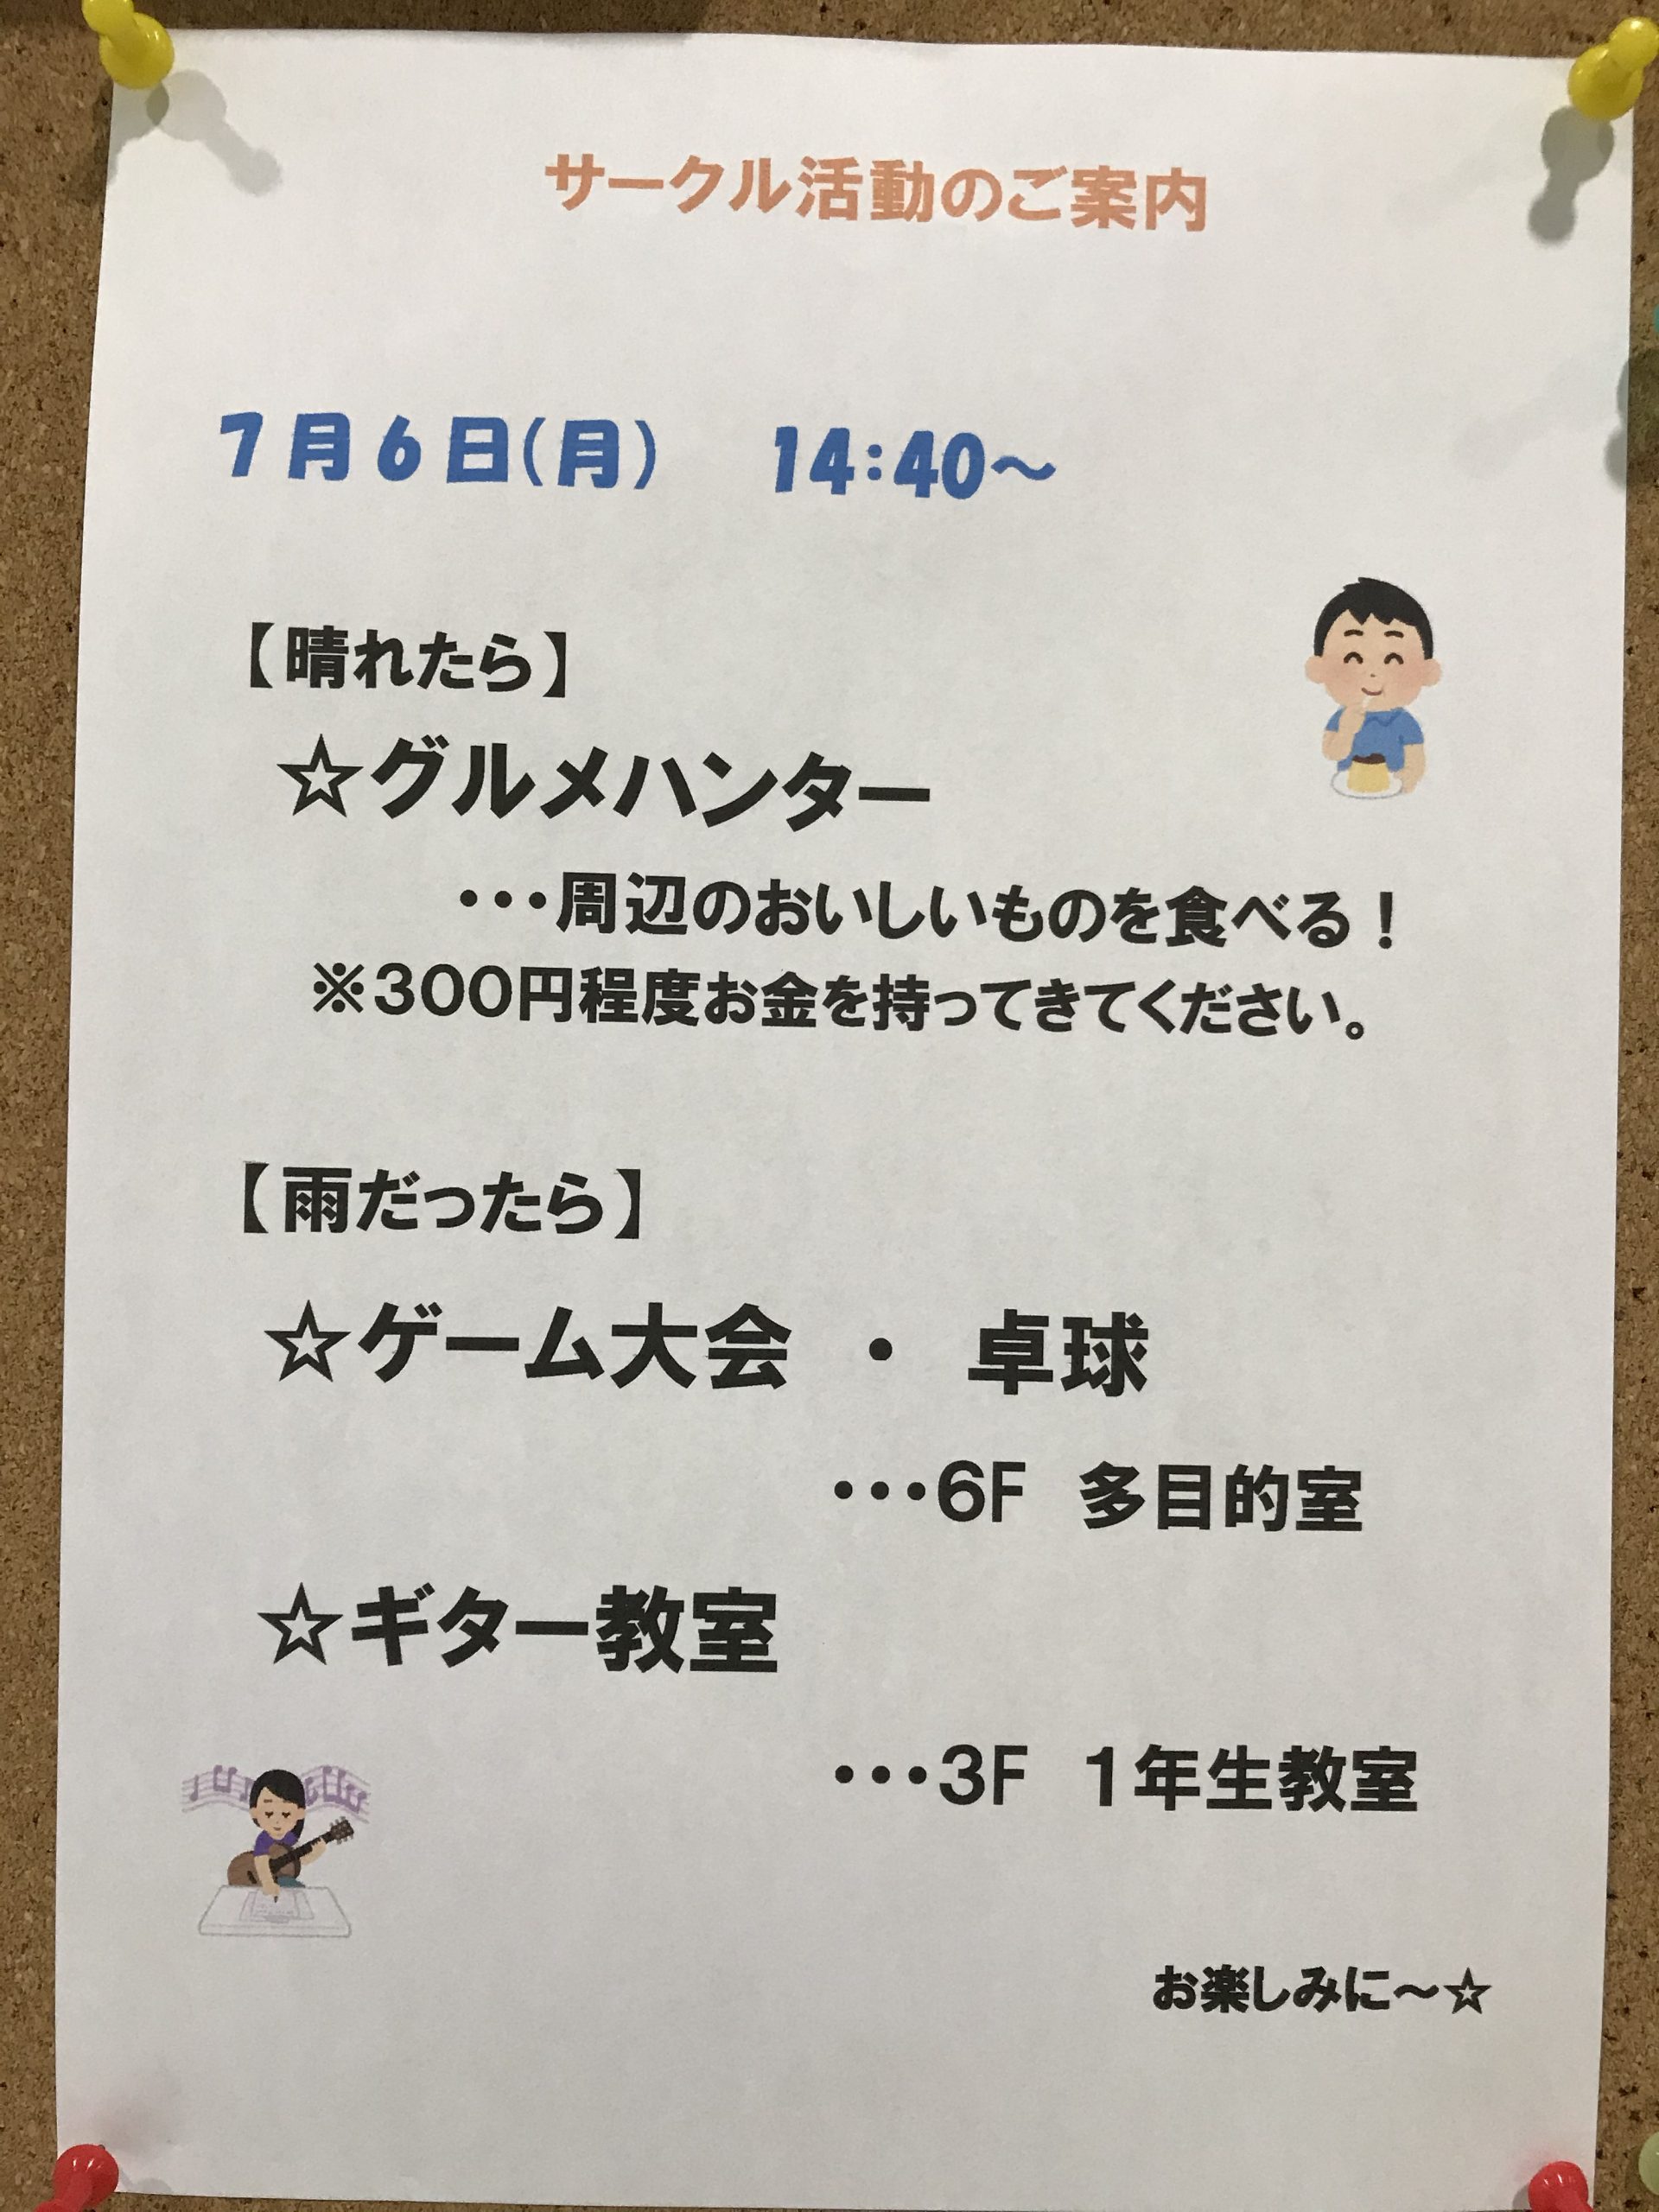 サークル活動のご案内
7月6日(月)　14:40～
【晴れたら】
☆グルメハンター
・・・周辺のおいしいものを食べる！
※300円程度お金を持ってきてください。
【雨だったら】
☆ゲーム大会　・　卓球
・・・6F　多目的室
☆ギター教室
・・・3F　1年生教室
お楽しみに～☆